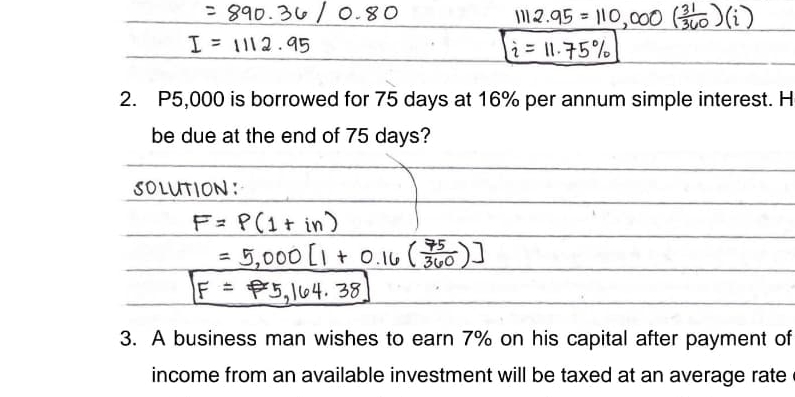 = 890.36 / 0.80
I = 1112.95
1112.95 = 110,000 (31/360)(i)
i = 11.75%
2. P5,000 is borrowed for 75 days at 16% per annum simple interest. H
be due at the end of 75 days?
SOLUTION:
F = P(1 + in)
= 5,000 [1 + 0.16 (75/360)]
F = ₱5,164.38
3. A business man wishes to earn 7% on his capital after payment of
income from an available investment will be taxed at an average rate